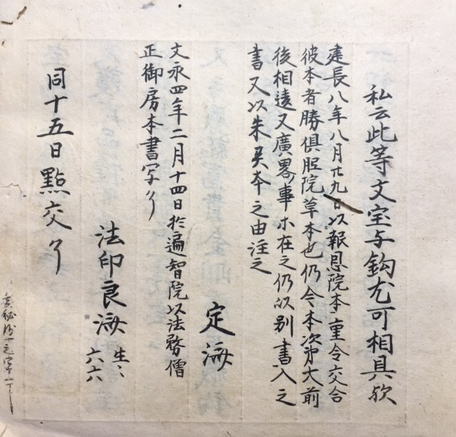 私云此等文宝与鈎尤可相具欤
建長八年八月廿九日以報恩院本重令交合
彼本者勝俱胝院草本也仍令本次第大前
後相違又廣畧事ホ在之仍以別書入之
書又以朱異本之由注之
定海
文永四年二月十四日於遍智院以法務僧
正御房本書写了
法印良海 生々六六
同十五日點交了